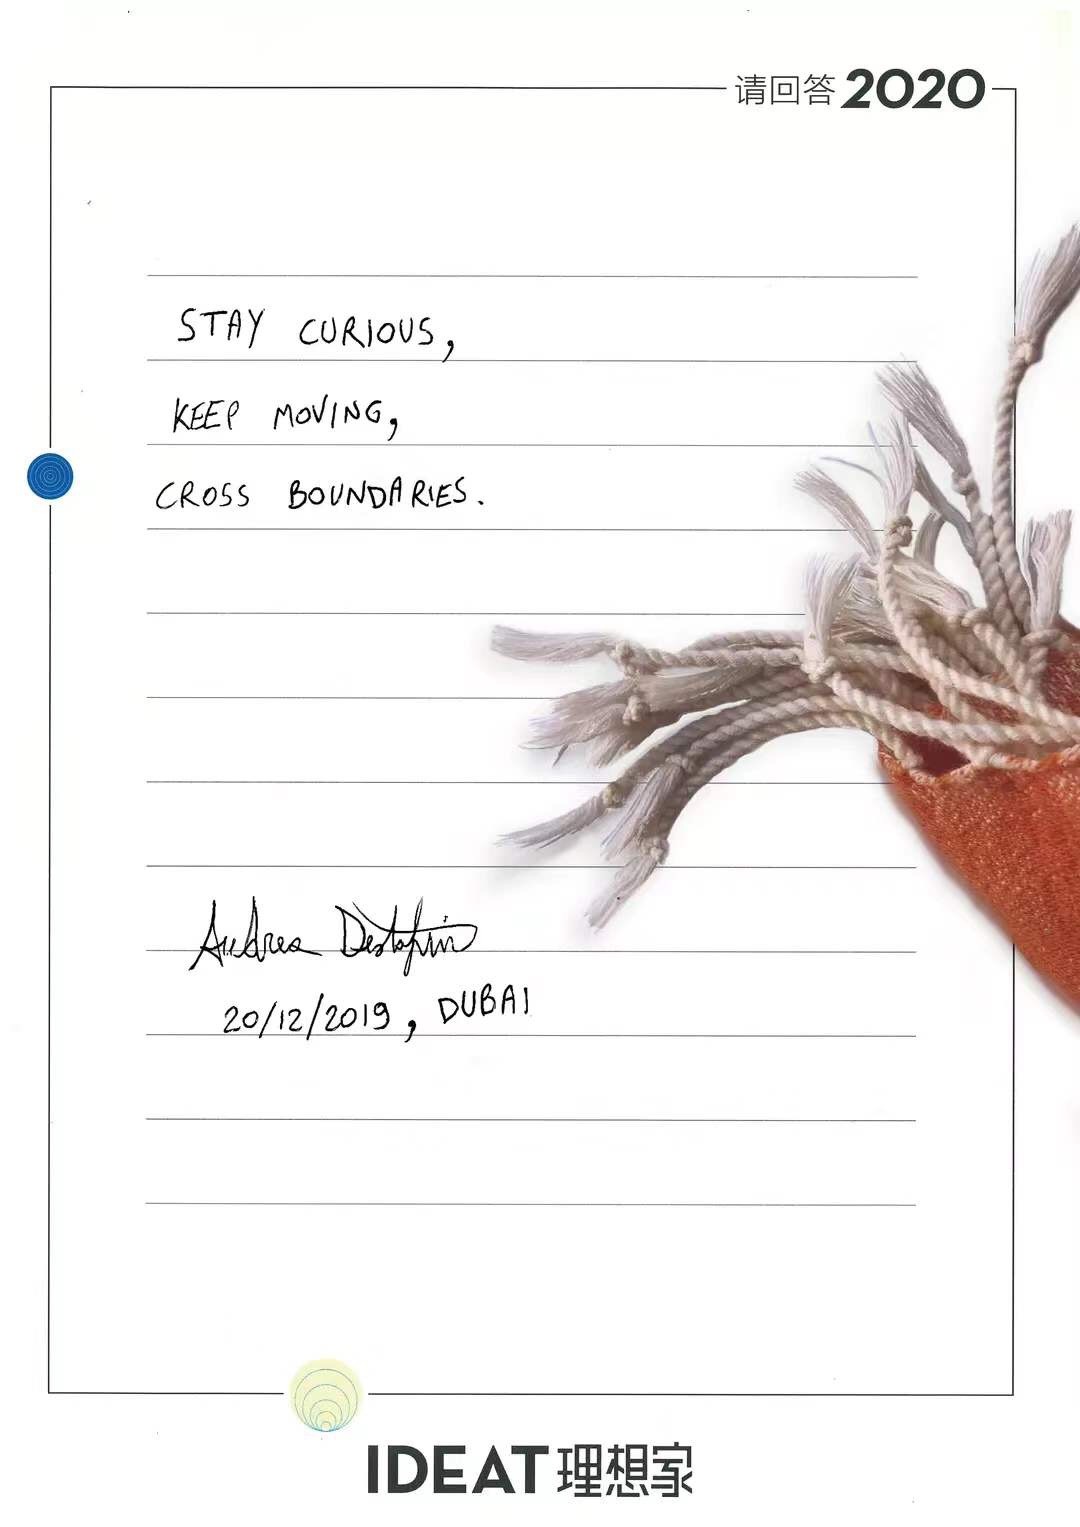 请回答2020
STAY CURIOUS,
KEEP MOVING,
CROSS BOUNDARIES.
Andrea
20/12/2019, DUBAI
IDEAT理想家